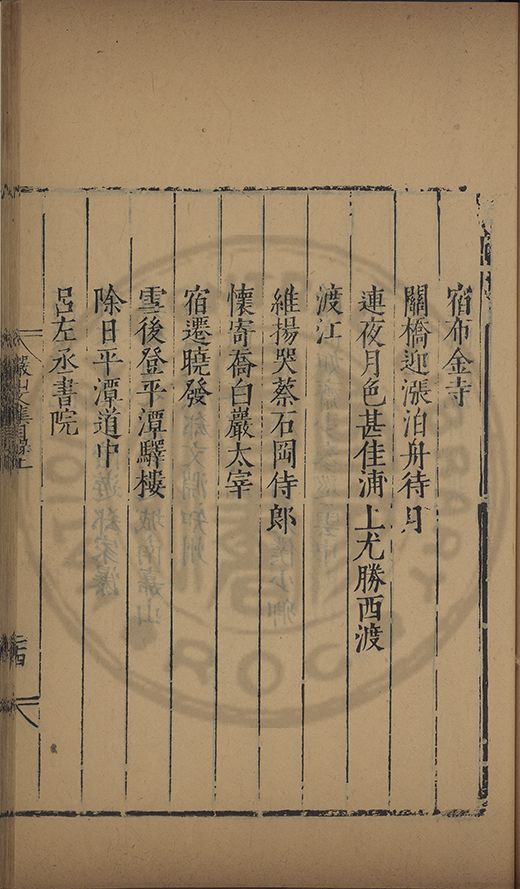 宿布金寺
關橋迎漲泊舟待月
連夜月色甚佳浦上尤勝西渡
渡江
維揚哭蔡石岡侍郎
懷寄喬白巖太宰
宿遷曉發
雪後登平潭驛樓
除日平潭道中
呂左丞書院